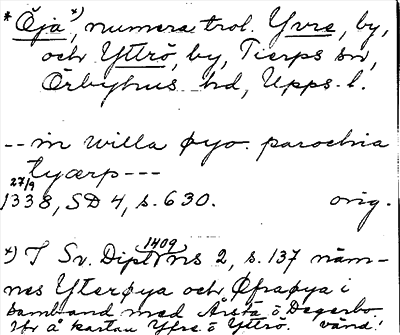 * Öja x), numera trol. Yvre, by,
och Yttrö, by, Tierps sn,
Örbyhus hd, Upps. l.
-- in willa øyo. parochia
tyærp ---
27/9
1338, SD 4, s. 630. orig.
1409
x) I Sv. Dipl. ns 2, s. 137 näm-
nes Yterøya och Øfraøya i
samband med Årsta o Degerbo.
Jfr å kartan Yfre o Yttrö.